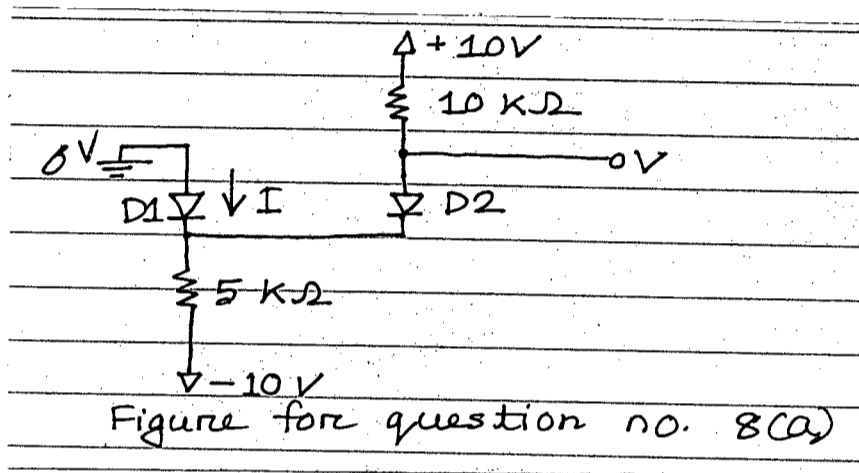 +10V
10 KΩ
0V
oV
D1 I
D2
5 KΩ
-10 V
Figure for question no. 8(a)